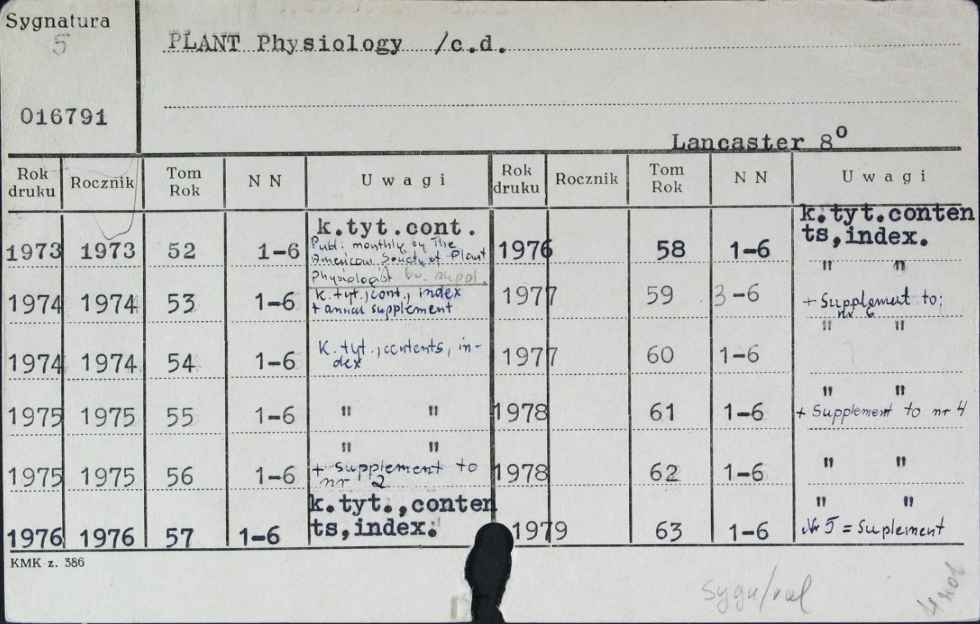 Sygnatura
5
016791
PLANT Physiology /c.d.
Lancaster 8°
Rok druku Rocznik Tom Rok N N U w a g i Rok druku Rocznik Tom Rok N N U w a g i
1973 1973 52 1-6 k.tyt.cont.
Publ. monthly by The
American Society of Plant
Physiologist
1974 1974 53 1-6 k.tyt.,cont., index
+ annual supplement
1974 1974 54 1-6 K.tyt.,contents, in-
dex
1975 1975 55 1-6 " "
1975 1975 56 1-6 " "
+ supplement to
nr 2
1976 1976 57 1-6 k.tyt.,conten
ts,index.
1976 58 1-6 k.tyt.conten
ts,index.
1977 59 3-6 " "
+ Supplement to;
nr 6
1977 60 1-6 " "
1978 61 1-6 " "
+ Supplement to nr 4
1978 62 1-6 " "
1979 63 1-6 " "
Nr 5 = Suplement
KMK z. 386